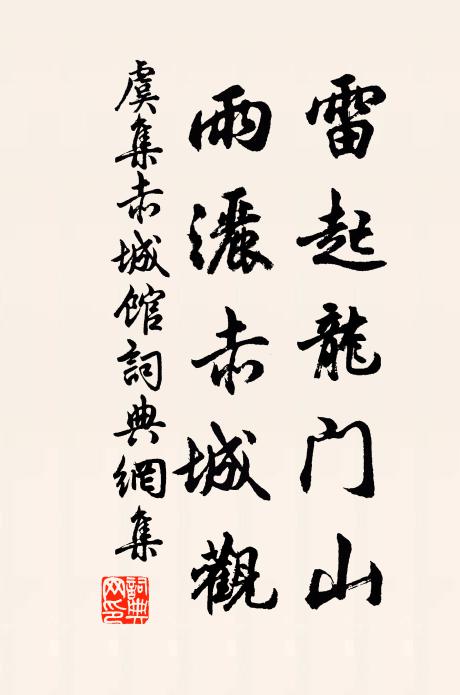 雷起龍门山
雨灑赤城觀
虞集赤城館詞典網集
詞典網印